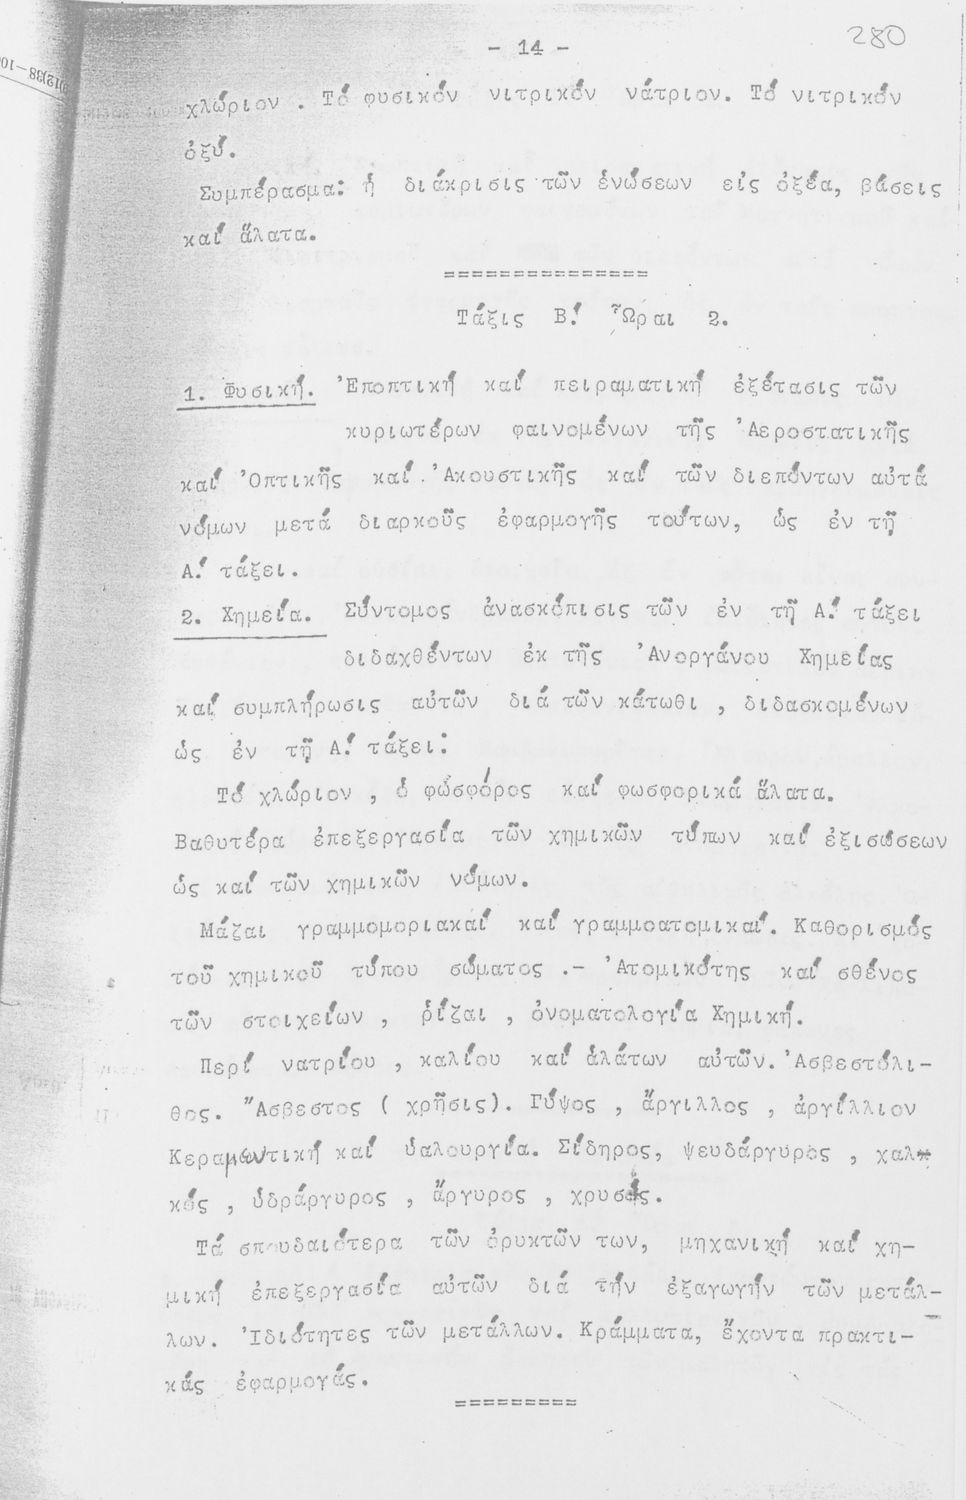 280
- 14 -
χλώριον . Τό φυσικόν νιτρικόν νάτριον. Τό νιτρικόν
ὀξύ.
Συμπέρασμα: ἡ διάκρισις τῶν ἑνώσεων εἰς ὀξέα, βάσεις
καί ἅλατα.
===============
Τάξις Β.' Ὧραι 2.
1. Φυσική. Ἐποπτική καί πειραματική ἐξέτασις τῶν
κυριωτέρων φαινομένων τῆς Ἀεροστατικῆς
καί Ὀπτικῆς καί Ἀκουστικῆς καί τῶν διεπόντων αὐτά
νόμων μετά διαρκοῦς ἐφαρμογῆς τούτων, ὡς ἐν τῇ
Α.' τάξει.
2. Χημεία. Σύντομος ἀνασκόπισις τῶν ἐν τῇ Α.' τάξει
διδαχθέντων ἐκ τῆς Ἀνοργάνου Χημείας
καί συμπλήρωσις αὐτῶν διά τῶν κάτωθι , διδασκομένων
ὡς ἐν τῇ Α.' τάξει:
Τό χλώριον , ὁ φώσφόρος καί φωσφορικά ἅλατα.
Βαθυτέρα ἐπεξεργασία τῶν χημικῶν τύπων καί ἐξισώσεων
ὡς καί τῶν χημικῶν νόμων.
Μάζαι γραμμομοριακαί καί γραμμοατομικαί. Καθορισμός
τοῦ χημικοῦ τύπου σώματος .- Ἀτομικότης καί σθένος
τῶν στοιχείων , ῥίζαι , ὀνοματολογία Χημική.
Περί νατρίου , καλίου καί ἁλάτων αὐτῶν. Ἀσβεστόλι-
θος. Ἄσβεστος ( χρῆσις). Γύψος , ἄργιλλος , ἀργίλλιον
Κεραμωτική καί ὑαλουργία. Σίδηρος, ψευδάργυρος , χαλ
κός , ὑδράργυρος , ἄργυρος , χρυσός.
Τά σπουδαιότερα τῶν ὀρυκτῶν των, μηχανική καί χη-
μική ἐπεξεργασία αὐτῶν διά τήν ἐξαγωγήν τῶν μετάλ-
λων. Ἰδιότητες τῶν μετάλλων. Κράμματα, ἔχοντα πρακτι-
κάς ἐφαρμογάς.
=========